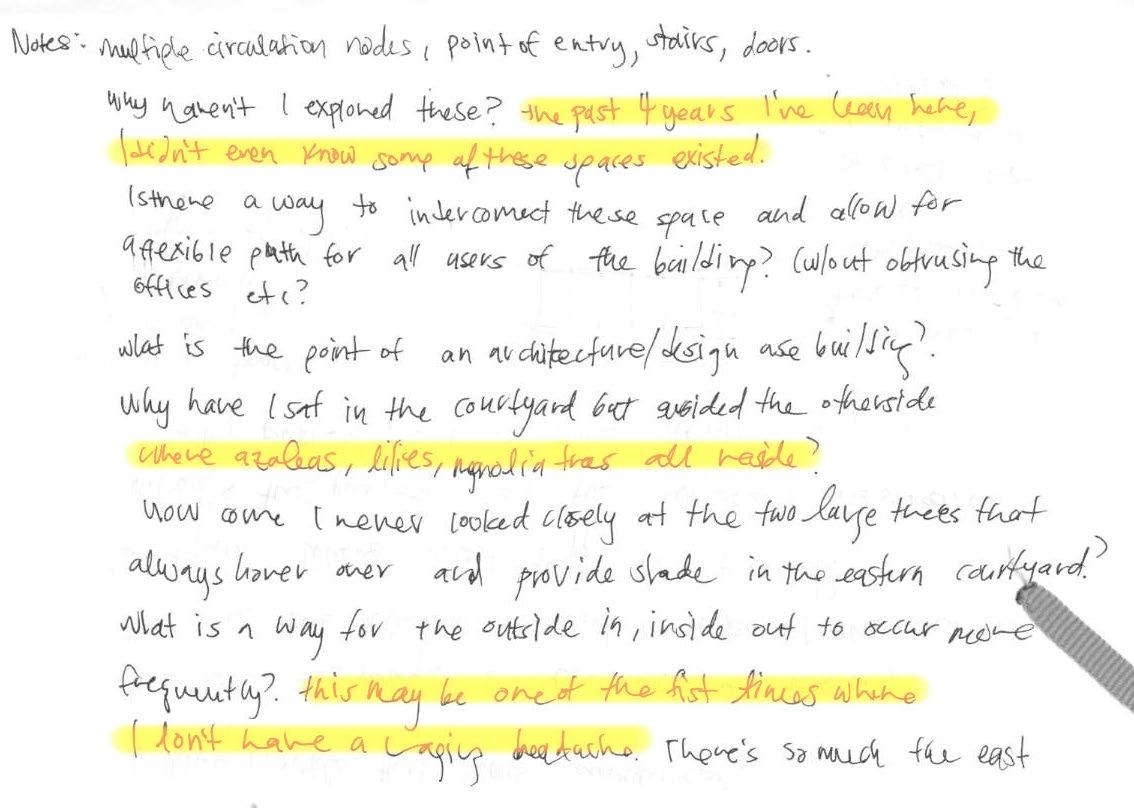 Notes: multiple circulation nodes, point of entry, stairs, doors.
Why haven't I explored these? the past 4 years I've been here,
I didn't even know some of these spaces existed.
Is there a way to interconnect these space and allow for
a flexible path for all users of the building? (w/out obtrusing the
offices etc?
what is the point of an architecture/design ase building?
Why have I sat in the courtyard but avoided the otherside
where azaleas, lilies, magnolia trees all reside?
how come I never looked closely at the two large trees that
always hover over and provide shade in the eastern courtyard?
What is a way for the outside in, inside out to occur more
frequently? this may be one of the fist times where
I don't have a raging headache. There's so much the east